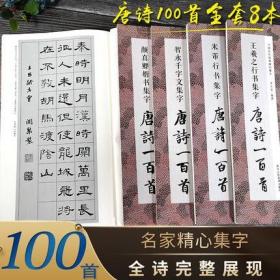 唐诗100首全套8本
秦時明月漢時關萬里長
征人未還但使龍城飛
王羲之行书集字
唐詩一百首
米芾行书集字
唐詩一百首
智永千字文集字
唐詩一百首
颜真卿楷书集字
唐詩一百首
100首
名家精心集字
全诗完整展现